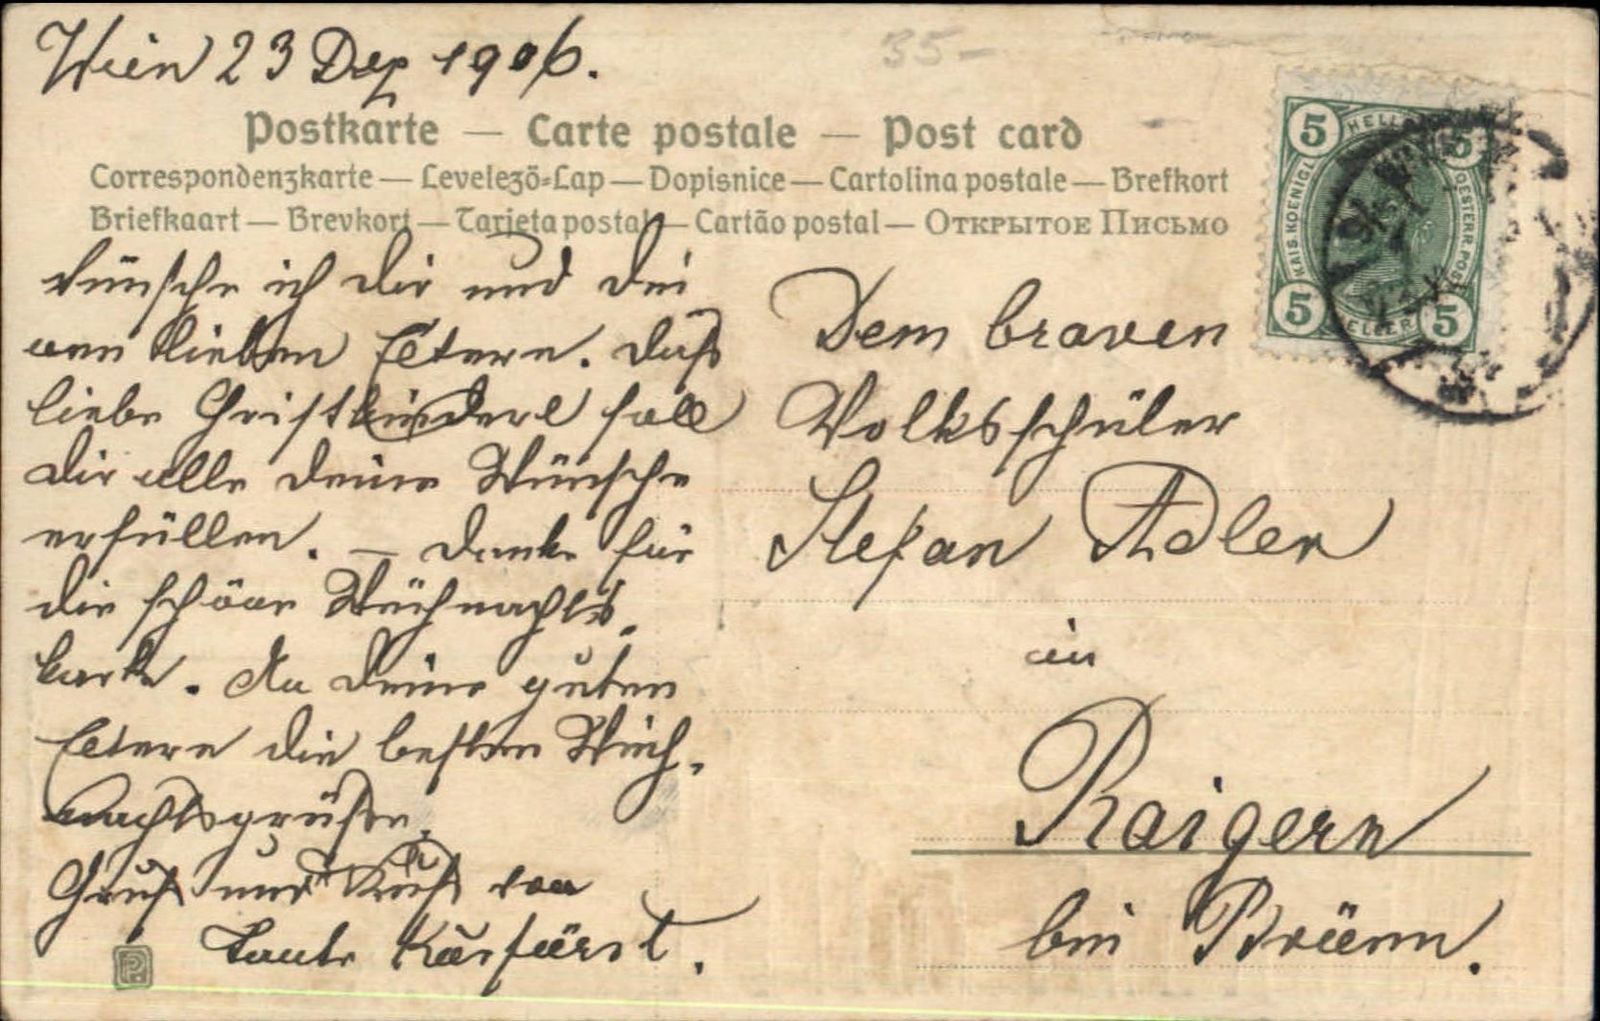 Wien 23 Dez 1906.
35-
Postkarte — Carte postale — Post card
Correspondenzkarte — Levelező-Lap — Dopisnice — Cartolina postale — Brefkort
Briefkaart — Brevkort — Tarjeta postal — Cartão postal — Открытое Письмо
5 HELLER 5
KAIS. KOENIGL. OESTERR. POST
5 HELLER 5
Wünsche ich Dir und Dei
nen lieben Eltern. Das
liebe Christkinderl soll
Dir alle Deine Wünsche
erfüllen. — Danke für
die schöne Weihnachts-
karte. An Deine guten
Eltern die besten Weih-
nachtsgrüße.
Gruß und Kuß von
Tante Kurfürst.
Dem braven
Volksschüler
Stefan Adler
in
Raigern
bei Brünn.